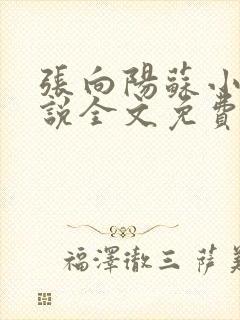 張向陽蘇小
說全文免費
福澤徹三 薩美